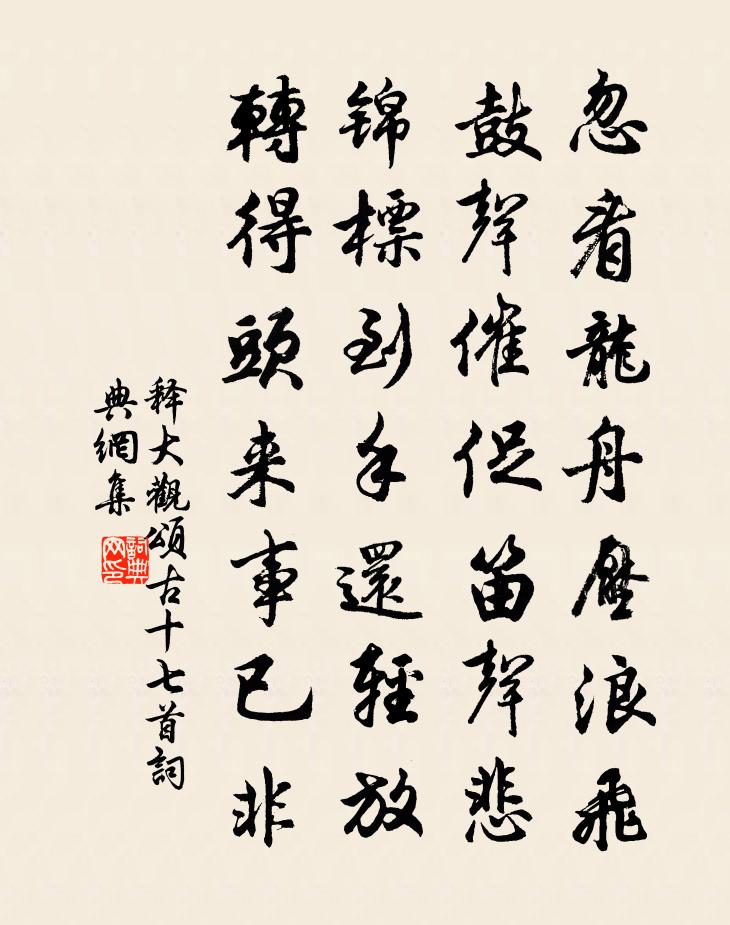 忽看龍舟壓浪飛
鼓聲催促笛聲悲
锦標到手還輕放
轉得頭来事已非
释大觀頌古十七首詞
典網集
詞典
网印